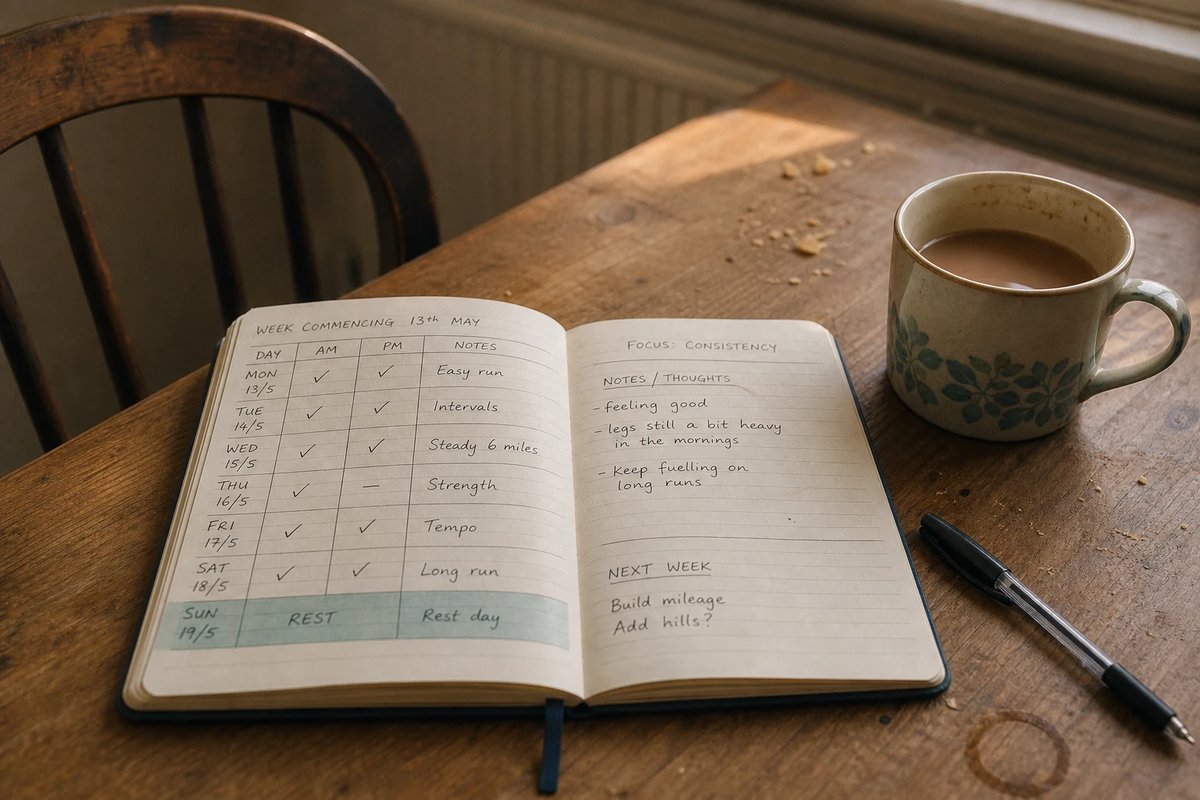 WEEK COMMENCING 13th MAY
DAY AM PM NOTES
MON ✓ ✓ Easy run
13/5
TUE ✓ ✓ Intervals
14/5
WED ✓ ✓ Steady 6 miles
15/5
THU ✓ — Strength
16/5
FRI ✓ ✓ Tempo
17/5
SAT ✓ ✓ Long run
18/5
SUN REST Rest day
19/5
FOCUS: CONSISTENCY
NOTES / THOUGHTS
- feeling good
- legs still a bit heavy
in the mornings
- Keep fuelling on
long runs
NEXT WEEK
Build mileage
Add hills?